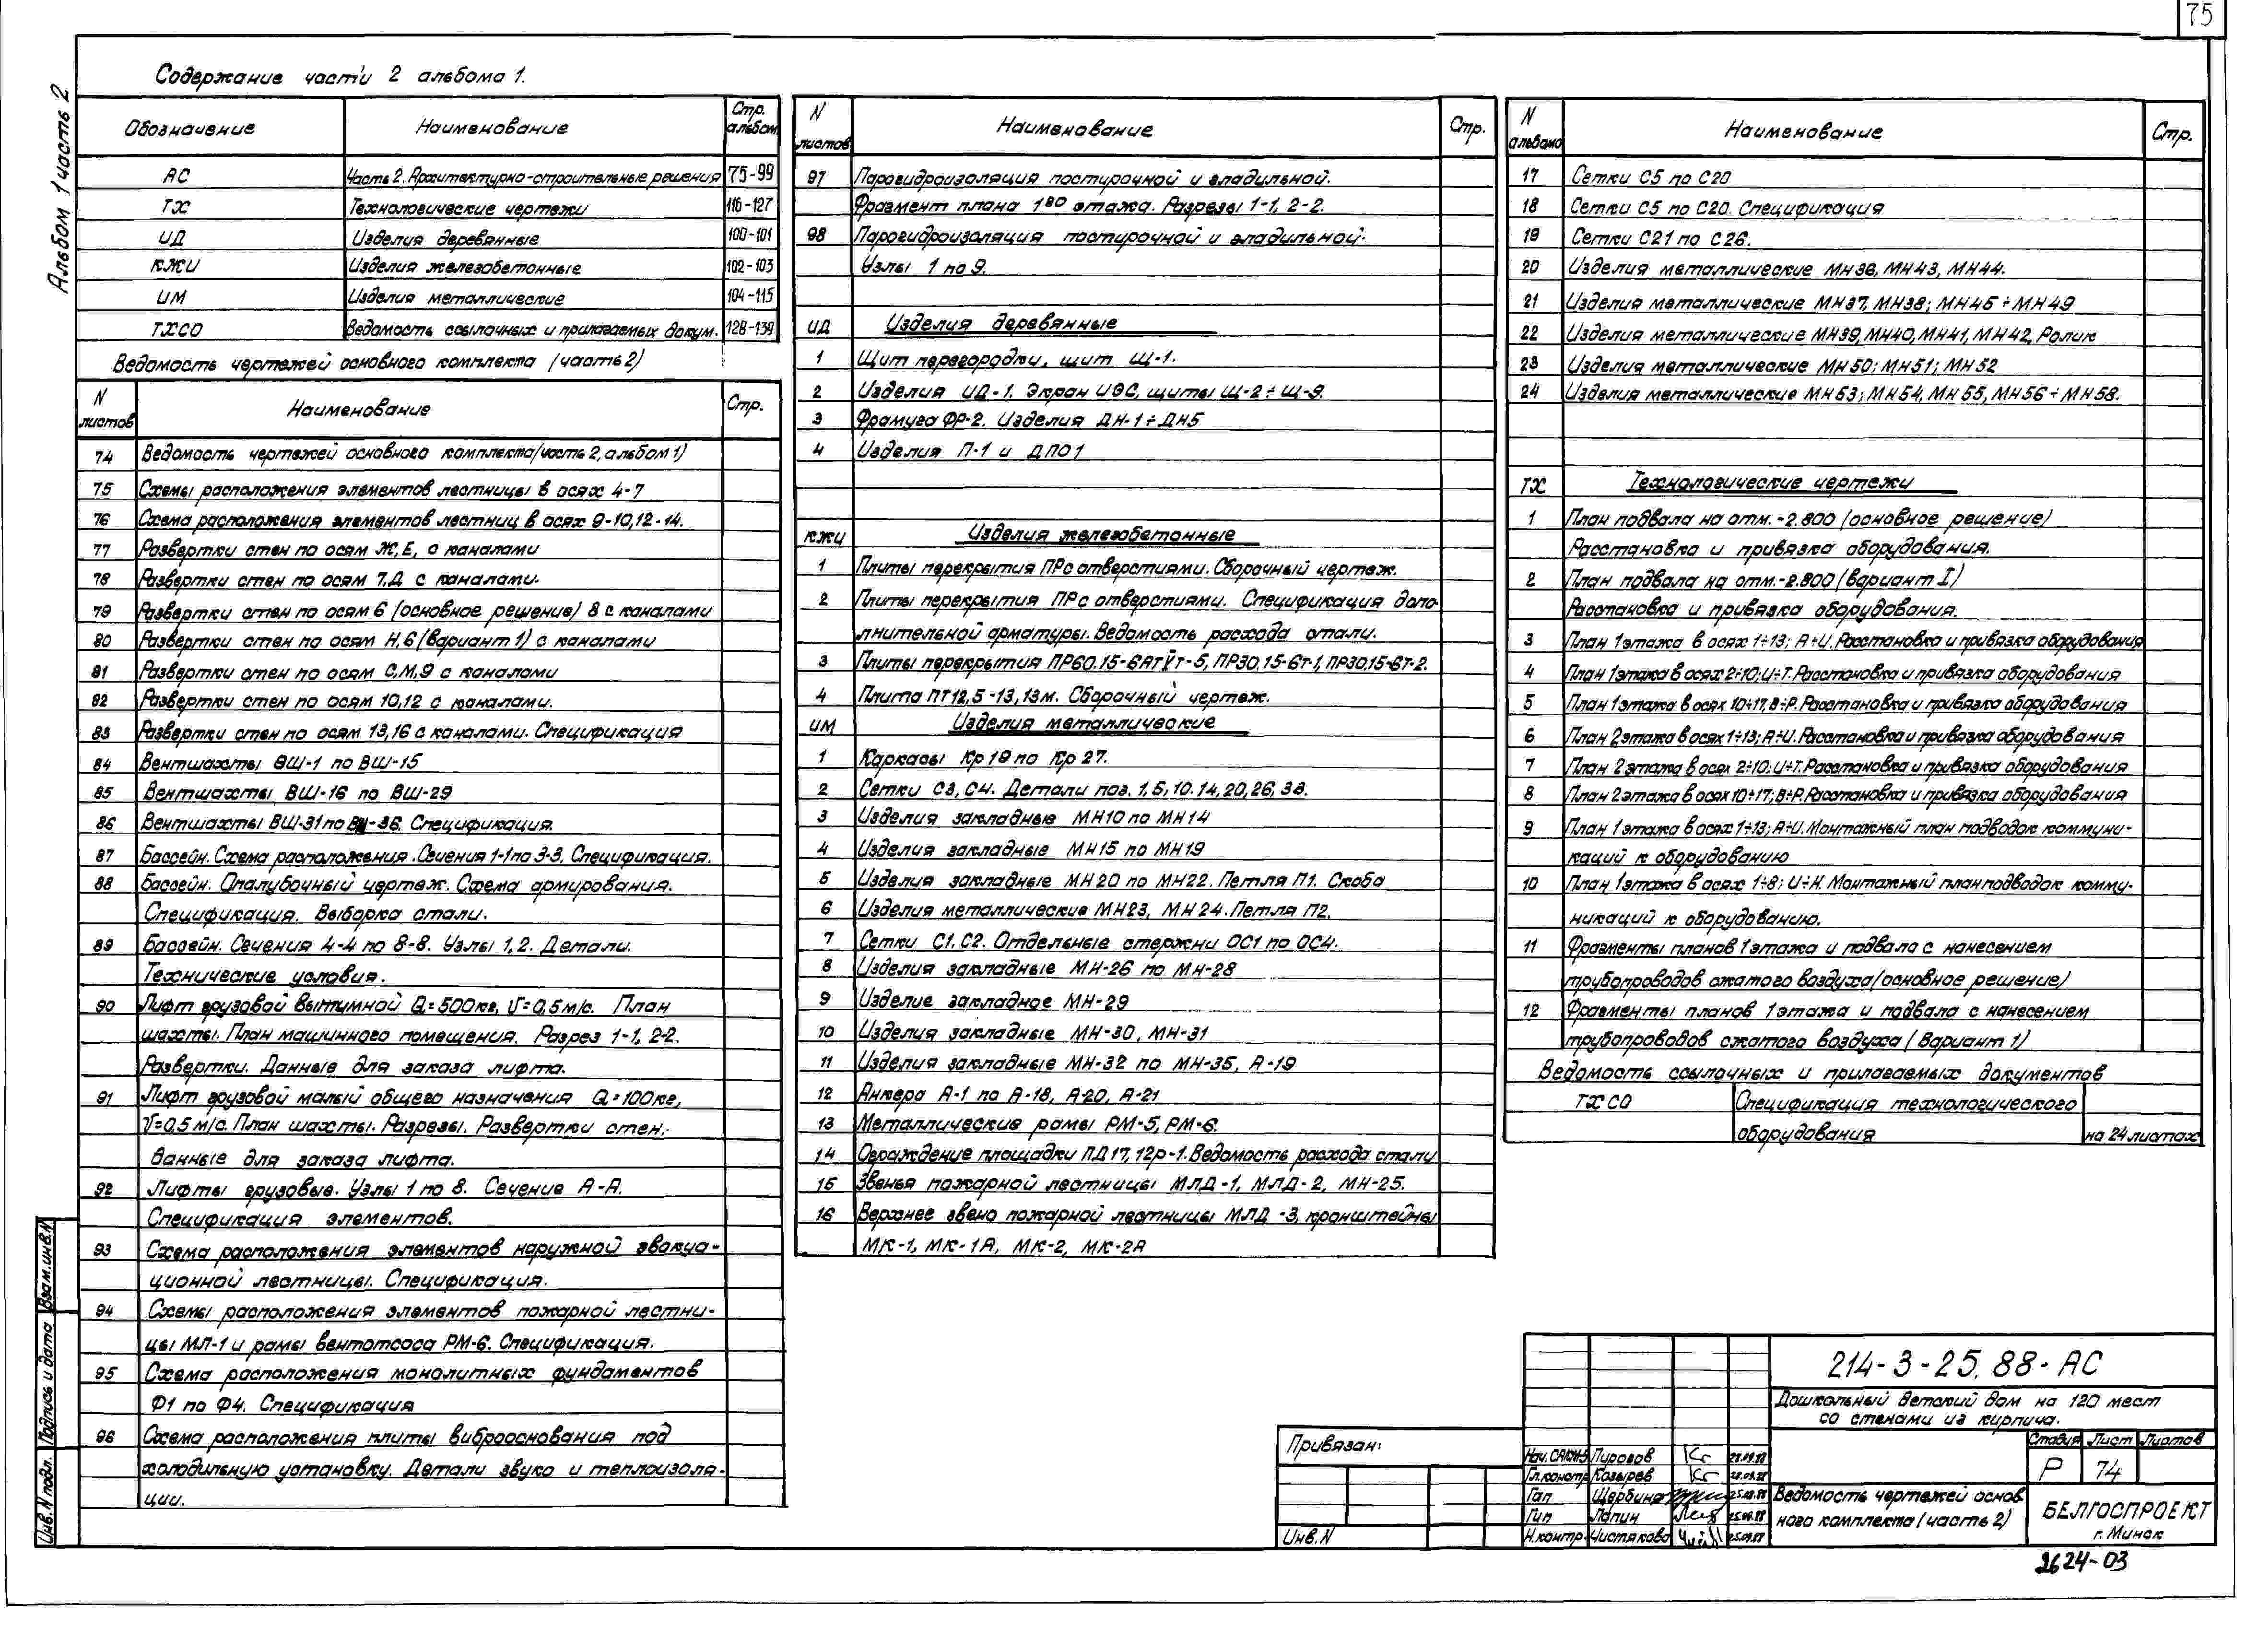 75
Альбом 1 часть 2
Содержание части 2 альбома 1.
Обозначение Наименование Стр. альбом.
АС Часть 2. Архитектурно-строительные решения 75-99
ТХ Технологические чертежи 116-127
ИД Изделия деревянные 100-101
КЖИ Изделия железобетонные 102-103
ИМ Изделия металлические 104-115
ТХСО Ведомость ссылочных и прилагаемых докум. 128-139
Ведомость чертежей основного комплекта (часть 2)
N листов Наименование Стр.
74 Ведомость чертежей основного комплекта (часть 2, альбом 1)
75 Схемы расположения элементов лестницы в осях 4-7
76 Схема расположения элементов лестниц в осях 9-10, 12-14.
77 Развертки стен по осям Ж, Е, с каналами
78 Развертки стен по осям 7, Д с каналами.
79 Развертки стен по осям 6 (основное решение) 8 с каналами
80 Развертки стен по осям Н, 6 (вариант 1) с каналами
81 Развертки стен по осям С, М, 9 с каналами
82 Развертки стен по осям 10, 12 с каналами.
83 Развертки стен по осям 13, 16 с каналами. Спецификация
84 Вентшахты ВШ-1 по ВШ-15
85 Вентшахты ВШ-16 по ВШ-29
86 Вентшахты ВШ-31 по ВШ-36. Спецификация.
87 Бассейн. Схема расположения. Сечения 1-1 по 3-3. Спецификация.
88 Бассейн. Опалубочный чертеж. Схема армирования.
Спецификация. Выборка стали.
89 Бассейн. Сечения 4-4 по 8-8. Узлы 1, 2. Детали.
Технические условия.
90 Лифт грузовой выжимной Q=500кг, V=0,5м/с. План
шахты. План машинного помещения. Разрез 1-1, 2-2.
Развертки. Данные для заказа лифта.
91 Лифт грузовой малый общего назначения Q=100кг,
V=0,5 м/с. План шахты. Разрезы. Развертки стен.
Данные для заказа лифта.
92 Лифты грузовые. Узлы 1 по 8. Сечение А-А.
Спецификация элементов.
93 Схема расположения элементов наружной эвакуа-
ционной лестницы. Спецификация.
94 Схемы расположения элементов пожарной лестни-
цы МЛ-1 и рамы вентотсоса РМ-6. Спецификация.
95 Схема расположения монолитных фундаментов
Ф1 по Ф4. Спецификация
96 Схема расположения плиты виброоснования под
холодильную установку. Детали звуко и теплоизоля-
ции.
N листов Наименование Стр.
97 Парогидроизоляция постирочной и гладильной.
Фрагмент плана 1го этажа. Разрезы 1-1, 2-2.
98 Парогидроизоляция постирочной и гладильной.
Узлы 1 по 9.
ИД Изделия деревянные
1 Щит перегородки, щит Щ-1.
2 Изделия ИД-1. Экран ИЭС, щиты Щ-2 ÷ Щ-9.
3 Фрамуга ФР-2. Изделия ДН-1 ÷ ДН5
4 Изделия П-1 и ДПО1
КЖИ Изделия железобетонные
1 Плиты перекрытия ПР с отверстиями. Сборочный чертеж.
2 Плиты перекрытия ПР с отверстиями. Спецификация допо-
лнительной арматуры. Ведомость расхода стали.
3 Плиты перекрытия ПР60.15-6АтVт-5, ПР30.15-6т-1, ПР30.15-6т-2.
4 Плита ПТ12,5-13,13м. Сборочный чертеж.
ИМ Изделия металлические
1 Каркасы Кр 19 по Кр 27.
2 Сетки С3, С4. Детали поз. 1, 5, 10. 14, 20, 26, 38.
3 Изделия закладные МН10 по МН14
4 Изделия закладные МН15 по МН19
5 Изделия закладные МН20 по МН22. Петля П1. Скоба
6 Изделия металлические МН23, МН24. Петля П2.
7 Сетки С1, С2. Отдельные стержни ОС1 по ОС4.
8 Изделия закладные МН-26 по МН-28
9 Изделие закладное МН-29
10 Изделия закладные МН-30, МН-31
11 Изделия закладные МН-32 по МН-35, А-19
12 Анкера А-1 по А-18, А-20, А-21
13 Металлические рамы РМ-5, РМ-6.
14 Ограждение площадки ПД17,12р-1. Ведомость расхода стали
15 Звенья пожарной лестницы МЛД-1, МЛД-2, МН-25.
16 Верхнее звено пожарной лестницы МЛД-3, кронштейны
МК-1, МК-1А, МК-2, МК-2А
N альбано Наименование Стр.
17 Сетки С5 по С20
18 Сетки С5 по С20. Спецификация
19 Сетки С21 по С26.
20 Изделия металлические МН36, МН43, МН44.
21 Изделия металлические МН37, МН38; МН45 ÷ МН49
22 Изделия металлические МН39, МН40, МН41, МН42, Ролик
23 Изделия металлические МН50; МН51; МН52
24 Изделия металлические МН53; МН54, МН55, МН56 ÷ МН58.
ТХ Технологические чертежи
1 План подвала на отм. -2.800 (основное решение)
Расстановка и привязка оборудования.
2 План подвала на отм. -2.800 (вариант I)
Расстановка и привязка оборудования.
3 План 1 этажа в осях 1÷13; А÷И. Расстановка и привязка оборудования
4 План 1 этажа в осях 2÷10; И÷Т. Расстановка и привязка оборудования
5 План 1 этажа в осях 10÷17, В÷Р. Расстановка и привязка оборудования
6 План 2 этажа в осях 1÷13; А÷И. Расстановка и привязка оборудования
7 План 2 этажа в осях 2÷10; И÷Т. Расстановка и привязка оборудования
8 План 2 этажа в осях 10÷17; В÷Р. Расстановка и привязка оборудования
9 План 1 этажа в осях 1÷13; А÷И. Монтажный план подводок коммуни-
каций к оборудованию
10 План 1 этажа в осях 1÷8; И÷Н. Монтажный план подводок комму-
никаций к оборудованию.
11 Фрагменты планов 1 этажа и подвала с нанесением
трубопроводов сжатого воздуха (основное решение)
12 Фрагменты планов 1 этажа и подвала с нанесением
трубопроводов сжатого воздуха (Вариант 1)
Ведомость ссылочных и прилагаемых документов
ТХ СО Спецификация технологического
оборудования на 24 листах
214-3-25.88-АС
Дошкольный детский дом на 120 мест
со стенами из кирпича.
Стадия Лист Листов
Р 74
Ведомость чертежей основ
ного комплекта (часть 2)
БЕЛГОСПРОЕКТ
г. Минск
Нач. САКМ-5 Пурогов 28.09.88
Гл. констр. Козырев 28.09.88
Гап Щербина 25.09.88
Гип Лапин 25.09.88
Н.контр. Чистякова 25.09.88
Привязан:
Инв. N
Взам. инв. N
Подпись и дата
Инв. N подл.
2624-03